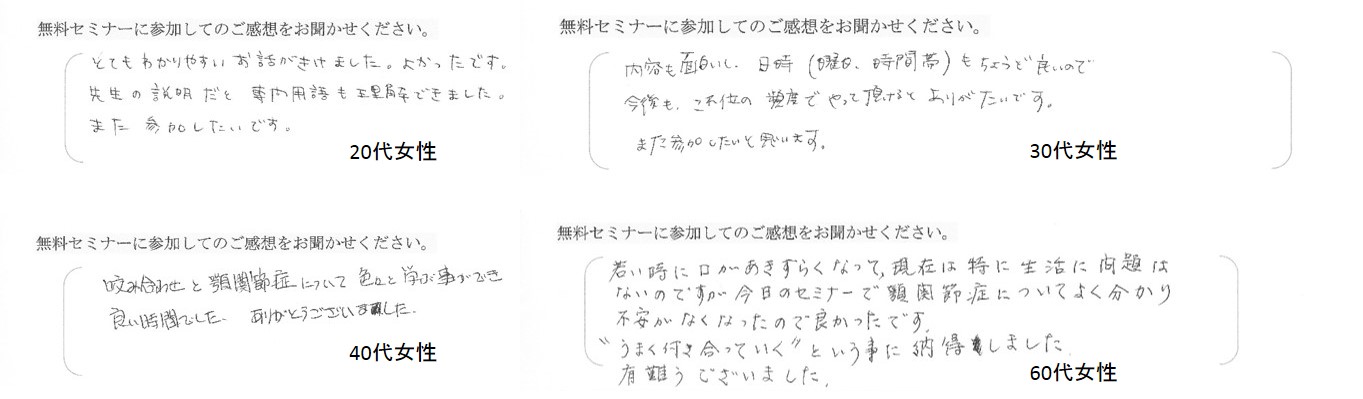 無料セミナーに参加してのご感想をお聞かせください。
とてもわかりやすいお話がきけました。よかったです。
先生の説明だと専門用語も理解できました。
また参加したいです。
20代女性
無料セミナーに参加してのご感想をお聞かせください。
内容も面白いし、日時(曜日、時間帯)もちょうど良いので
今後も、これ位の頻度でやって頂けるとありがたいです。
また参加したいと思います。
30代女性
無料セミナーに参加してのご感想をお聞かせください。
咬み合わせと顎関節症について色々と学ぶ事ができ
良い時間でした。ありがとうございました。
40代女性
無料セミナーに参加してのご感想をお聞かせください。
若い時に口があきずらくなって、現在は特に生活に問題は
ないのですが今日のセミナーで顎関節症についてよく分かり
不安がなくなったので良かったです。
"うまく付き合っていく"という事に納得しました。
有難うございました。
60代女性